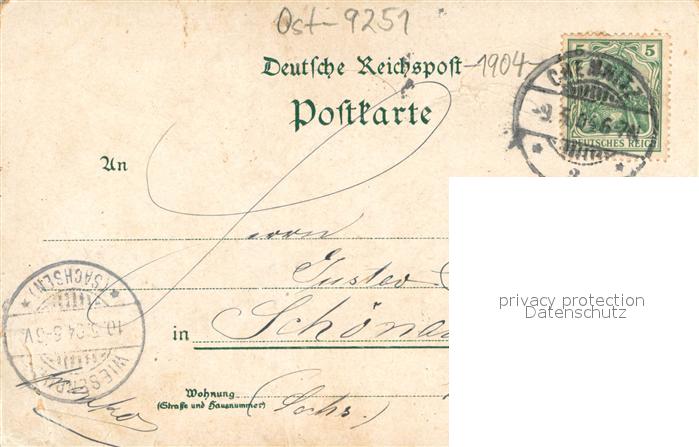 Ost-9251
Deutsche Reichspost -1904-
Postkarte
5 5
DEUTSCHES REICH
CHEMNITZ
9.5.04 6-7N.
* 2 *
An
Herrn
Gustav
in Schönau
(Sachs.)
Wohnung
(Straße und Hausnummer)
* (SACHSEN) *
10.5.04 6-
privacy protection
Datenschutz